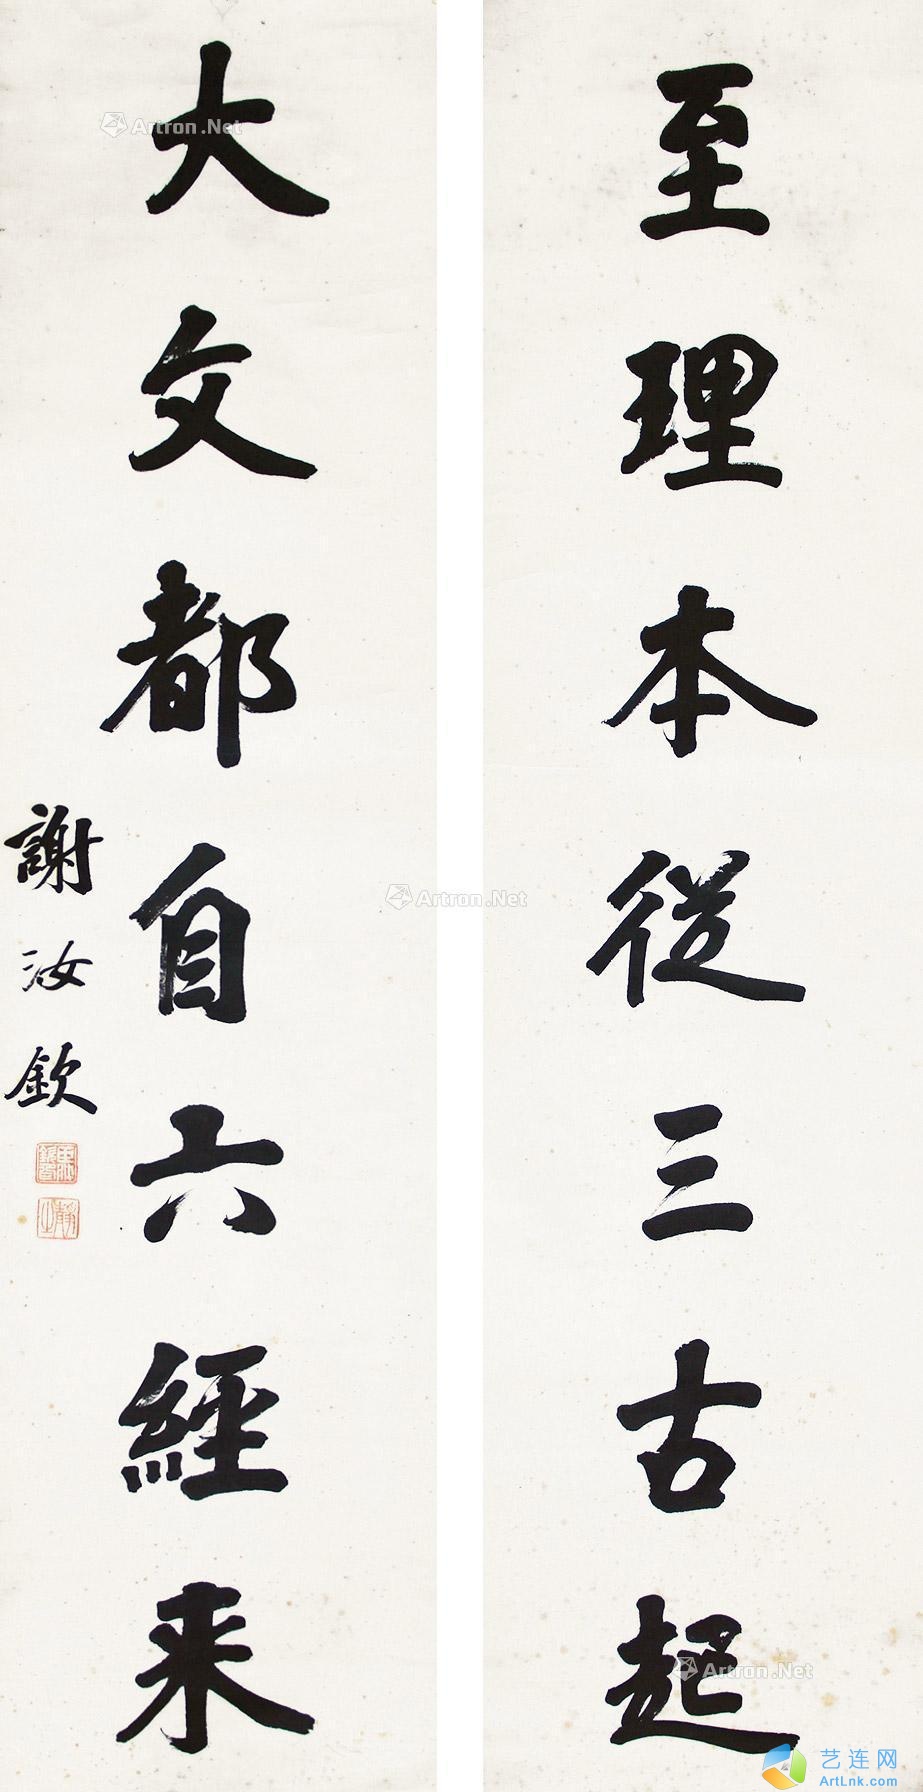 至理本從三古起
大文都自六經来
謝汝欽
Artron.Net
Artron.Net
Artron.Net
艺连网
ArtLnk.com